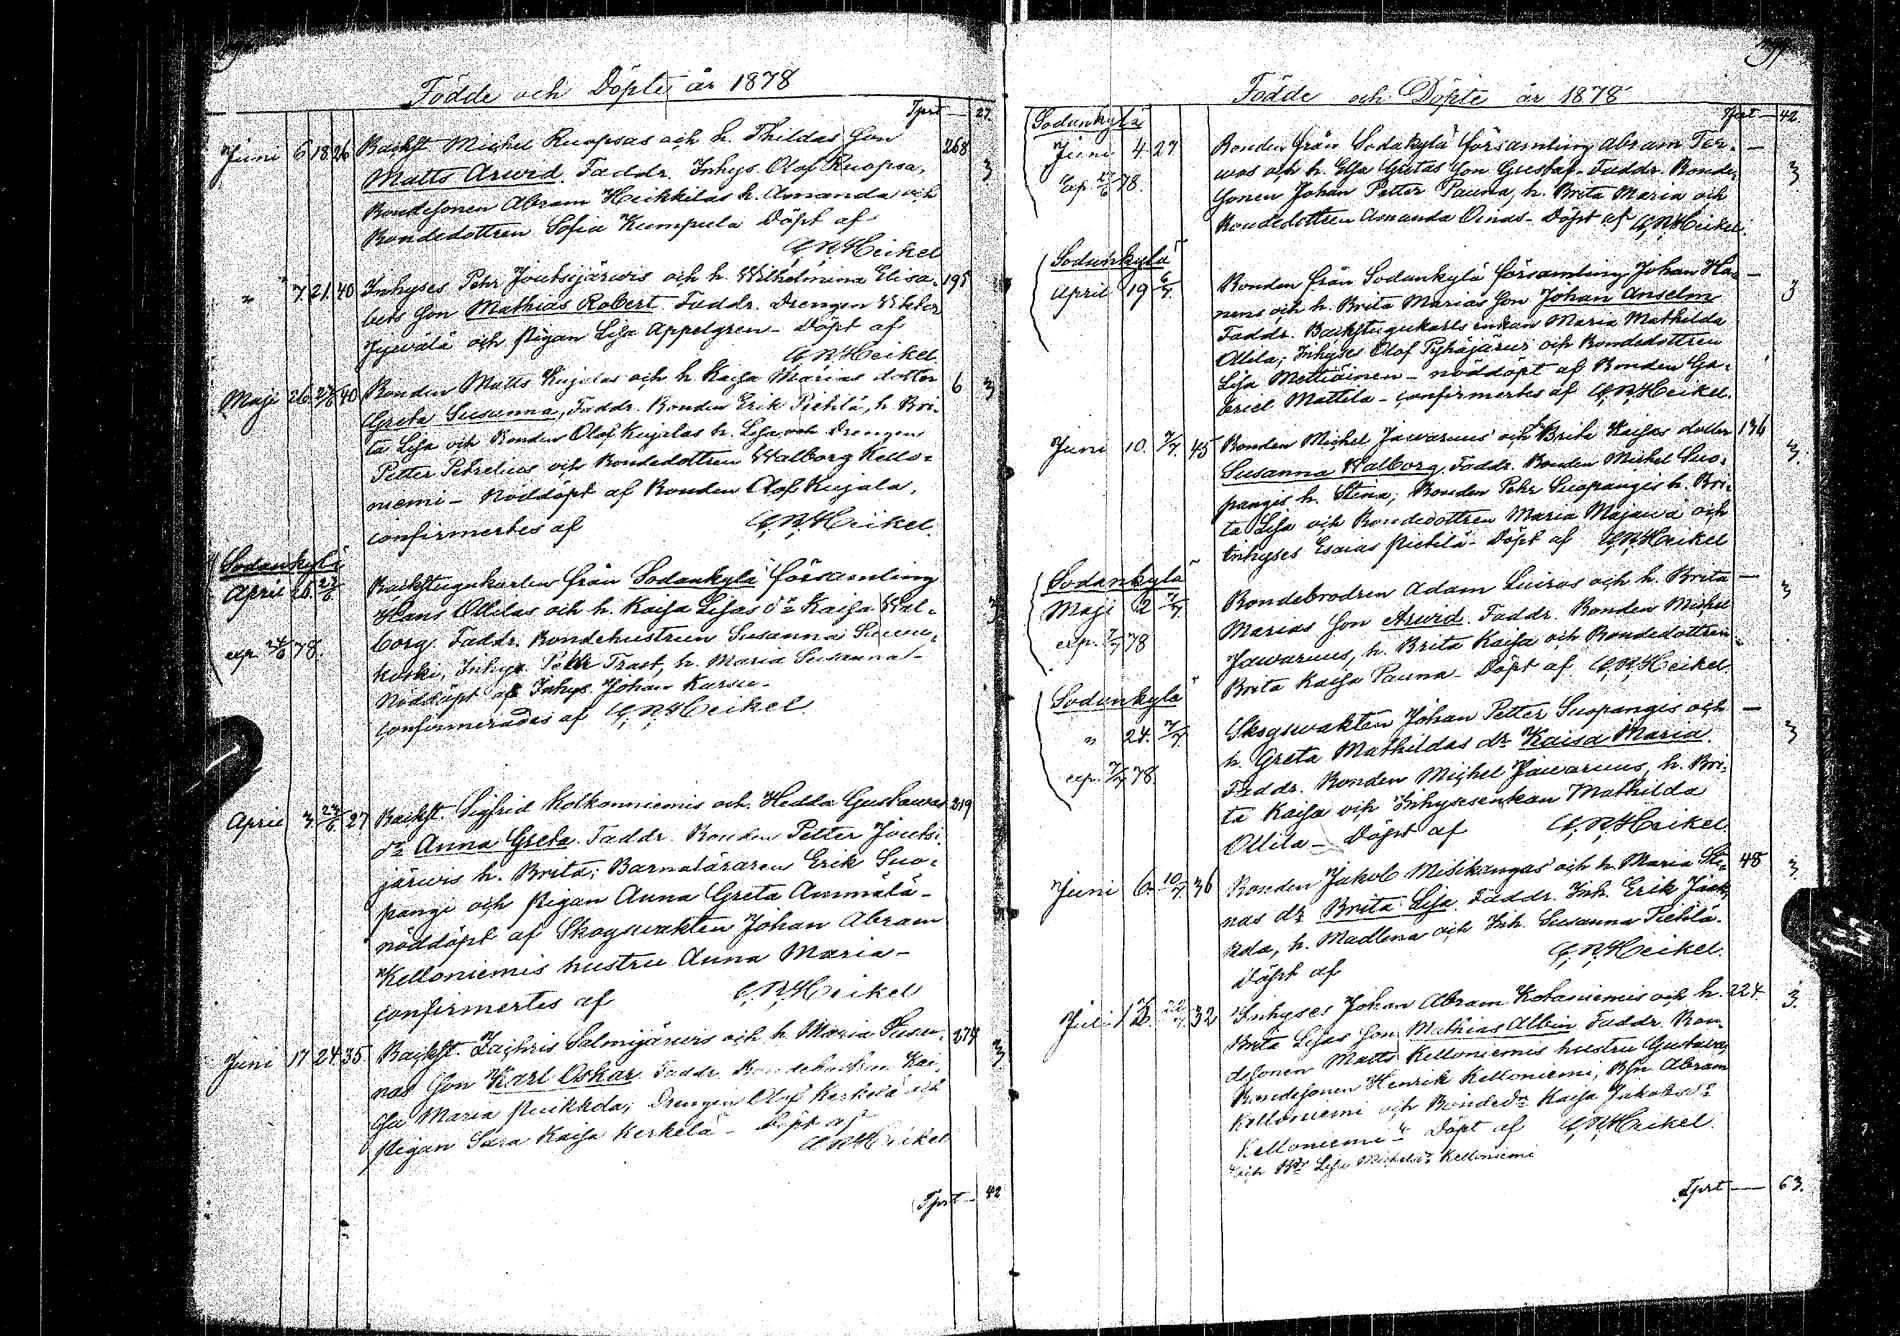 Födde och Döpte år 1878
Tprt — 27
Juni 6 18 26 Backst. Michel Ruopsas och h. Thildas Son 268 3
Matts Arvid. Faddr. Inhys. Olof Ruopsa,
Bondesonen Abram Heikkilas h. Amanda och
Bondedottren Sofia Kumpula Döpt af
C.R.Heikel
" 7. 21. 40 Inhyses Pehr Jouhsijärwis och h. Wilhelmina Elisa- 195
bets Son Mathias Robert. Faddr. Drengen Wikter
Jyuvälä och Pigan Lisa Appelgren - Döpt af
C.R.Heikel
Maji 26. 23/6 40 Bonden Matts Kujalas och h. Kaisa Marias dotter 6 3
Greta Susanna, Faddr. Bonden Erik Pichtä, h. Bri-
ta Lisa och Bonden Olof Kujalas h. Lisa och Drengen
Petter Petrelius och Bondedottren Walborg Kello-
niemi - Nöddöpt af Bonden Olof Kujala,
confirmertes af C.R.Heikel.
Sodankylä
April 26. 23/6 Backstugukarlen från Sodankylä församling
Hans Ollilas och h. Kaisa Lisas dr Kaisa Wal- 3
borg. Faddr. Bondehustrun Susanna
exp. 24/6 78. koski, Inhys. Pehr Trast, h. Maria Susanna -
Nöddöpt af Inhys. Johan Kursu -
confirmerades af C.R.Heikel
April 3. 23/6 27 Backst. Sigfrid Kolkonniemis och Hedda Gustawas 219
dr Anna Greta. Faddr. Bonden Petter Jouhsi-
järwis h. Brita; Barnaläraren Erik Suo-
pangi och Pigan Anna Greta Ammälä -
nöddöpt af Skogswakten Johan Abram
Kelloniemis hustru Anna Maria -
confirmertes af C.R.Heikel
Juni 17 24 35. Backst. Zachris Salmijärwis och h. Maria Susan- 274 3
nas Son Karl Oskar. Faddr. Bondehustrun Kai-
sa Maria Puikkola; Drengen Olof Kerkelä och
Pigan Sara Kaisa Kerkelä - Döpt af
C.R.Heikel
Tprt — 42
Födde och Döpte år 1878
Tprt — 42
Sodankylä
Juni 4 27 Bonden från Sodakylä församling Abram Ter- —
Exp. 27/6 78. wos och h. Elsa Gretas Son Gustaf - Faddr. Bonde- 3
sonen Johan Petter Pauna, h. Brita Maria och
Bondedottren Amanda Oinas - Döpt af C.R.Heikel.
Sodankylä
April 19 6/7. Bonden från Sodankylä församling Johan Ha- — 3
nens och h. Brita Marias Son Johan Anselm
Faddr. Backstugukarls enkan Maria Mathilda
Ollila; Inhyses Olof Pyhäjärwi och Bondedottren
Lisa Mettiäinen - nöddöpt af Bonden Ga-
briel Mattila - confirmertes af C.R.Heikel.
Juni 10. 7/7. 45 Bonden Michel Jawarus och Brita Kaisas dotter 136
Susanna Walborg. Faddr. Bonden Michel Suo- 3.
pangis h. Stina; Bonden Pehr Suopangis h. Bri-
ta Lisa och Bondedottren Maria Majawa och
Inhyses Esaias Pichtilä - Döpt af C.R.Heikel
Sodankylä
Maji 2 7/7. Bondebrodren Adam Luiros och h. Brita — 3
Marias Son Arvid. Faddr. Bonden Michel
exp. 7/7 78 Jawarus, h. Brita Kaisa och Bondedottren
Brita Kaisa Pauna - Döpt af C.R.Heikel
Sodankylä
" 24. 7/7. Skogswakten Johan Petter Suopangis och —
h. Greta Mathildas dr Kaisa Maria. 3
exp. 7/7 78. Faddr. Bonden Michel Jawarus, h. Bri-
ta Kaisa och Inhysesenkan Mathilda
Ollila - Döpt af C.R.Heikel.
Juni 6. 10/7 36 Bonden Jakob Misikangas och h. Maria Sti- 48 3
nas dr Brita Lisa. Faddr. Inh. Erik Jaak-
kola, h. Madlena och Inh. Susanna Pichtilä.
Döpt af C.R.Heikel.
Juli 12. 22/7. 32 Inhyses Johan Abram Kotaniemis och h. 224. 3.
Brita Lisas Son Mathias Albin. Faddr. Bon-
desonen Matts Kelloniemis hustru Gustava,
Bondesonen Henrik Kelloniemi, Bsn Abram
Kelloniemi och Bondedr Kaisa Jakobsdr
Kelloniemi" Döpt af C.R.Heikel.
"och Bdr Lisa Michelsdr Kelloniemi
Tprt — 63.